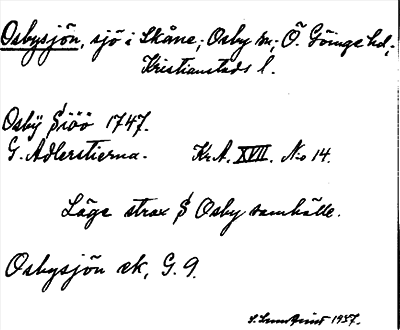 Osbysjön, sjö i Skåne; Osby sn; Ö. Göinge hd;
Kristianstads l.
Osbÿ Siöö 1747.
G. Adlerstierna. Kr. A. XVII. No 14.
Läge strax S Osby samhälle.
Osbysjön ek, G. 9.
1937.